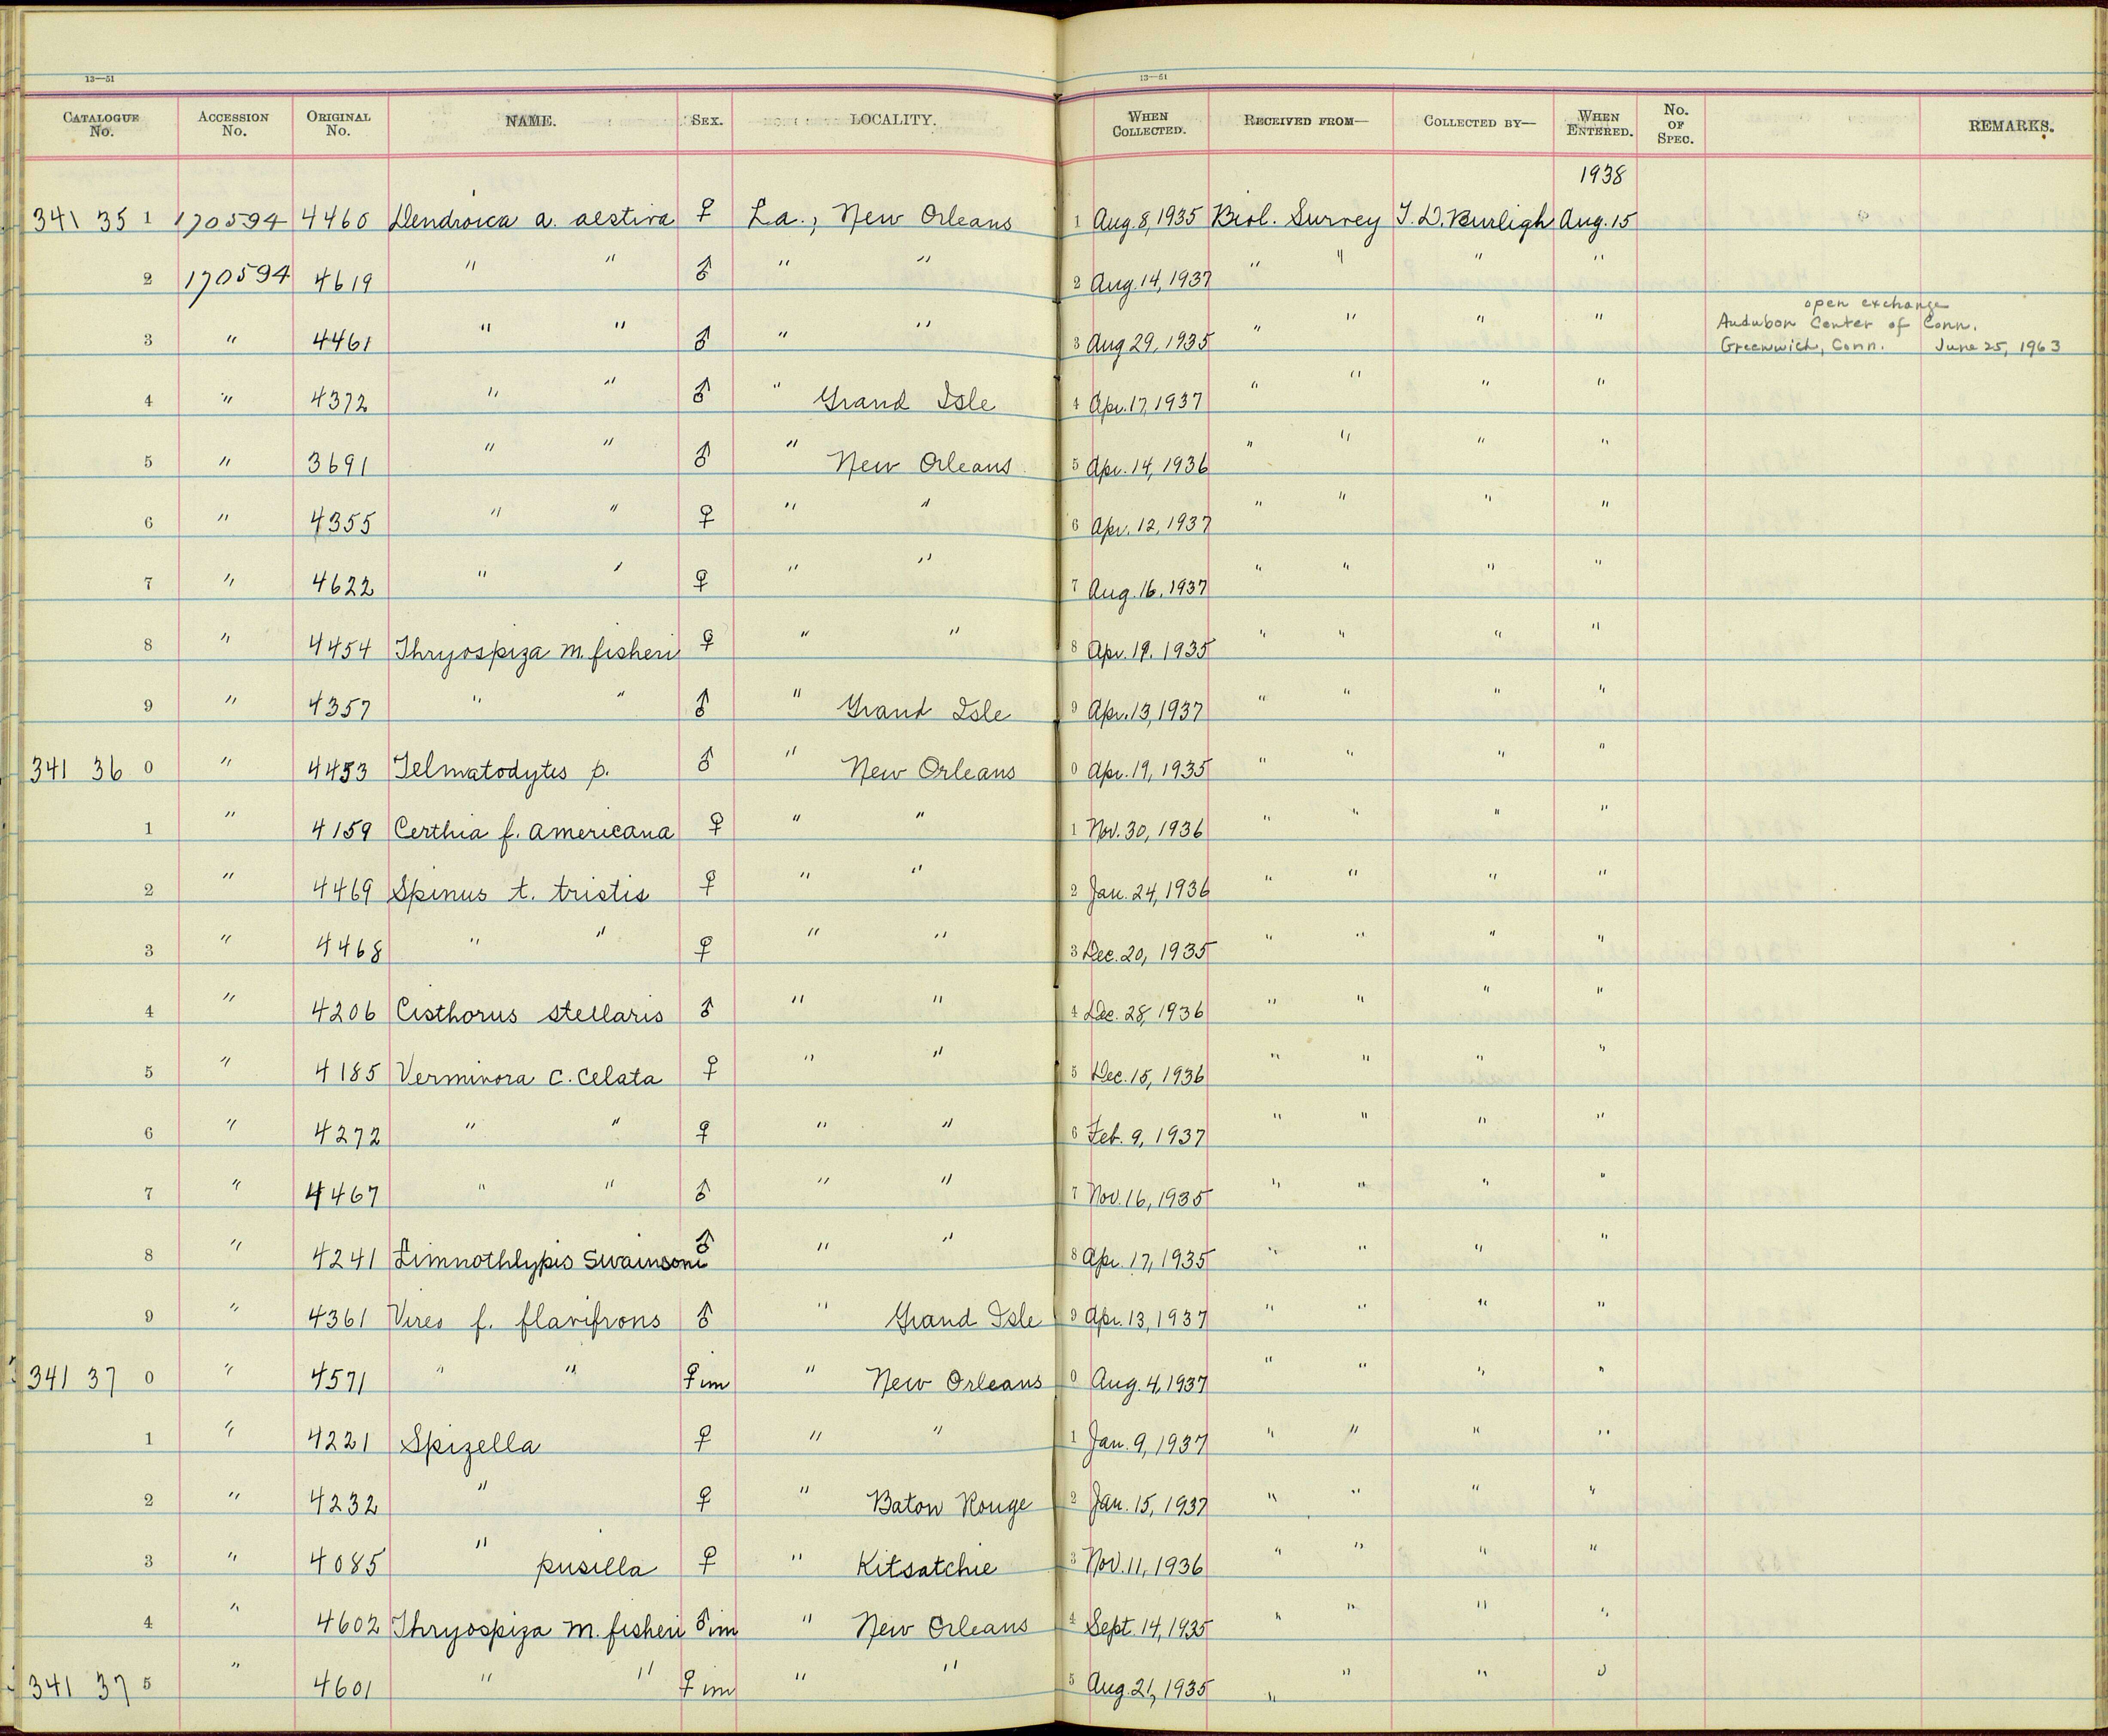 13—51 13—51
CATALOGUE No. ACCESSION No. ORIGINAL No. NAME. SEX. LOCALITY. WHEN COLLECTED. RECEIVED FROM— COLLECTED BY— WHEN ENTERED. No. OF SPEC. REMARKS.
1938
341 35 1 170594 4460 Dendroica a. aestiva ♀ La., New Orleans 1 Aug. 8, 1935 Biol. Survey T. D. Burleigh Aug. 15
2 170594 4619 " " ♂ " " 2 Aug. 14, 1937 " " " "
open exchange
Audubon Center of Conn.
3 " 4461 " " ♂ " " 3 Aug 29, 1935 " " " " Greenwich, Conn. June 25, 1963
4 " 4372 " " ♂ " Grand Isle 4 Apr. 17, 1937 " " " "
5 " 3691 " " ♂ " New Orleans 5 Apr. 14, 1936 " " " "
6 " 4355 " " ♀ " " 6 Apr. 12, 1937 " " " "
7 " 4622 " " ♀ " " 7 Aug. 16, 1937 " " " "
8 " 4454 Thryospiza m. fisheri ♀ " " 8 Apr. 19. 1935 " " " "
9 " 4357 " " ♂ " Grand Isle 9 Apr. 13, 1937 " " " "
341 36 0 " 4453 Telmatodytes p. ♂ " New Orleans 0 Apr. 19, 1935 " " " "
1 " 4159 Certhia f. americana ♀ " " 1 Nov. 30, 1936 " " " "
2 " 4469 Spinus t. tristis ♀ " " 2 Jan. 24, 1936 " " " "
3 " 4468 " " ♀ " " 3 Dec. 20, 1935 " " " "
4 " 4206 Cisthorus stellaris ♂ " " 4 Dec. 28, 1936 " " " "
5 " 4185 Vermivora c. celata ♀ " " 5 Dec. 15, 1936 " " " "
6 " 4272 " " ♀ " " 6 Feb. 9, 1937 " " " "
7 " 4467 " " ♂ " " 7 Nov. 16, 1935 " " " "
8 " 4241 Limnothlypis Swainsoni ♂ " " 8 Apr. 17, 1935 " " " "
9 " 4361 Vireo f. flavifrons ♂ " Grand Isle 9 Apr. 13, 1937 " " " "
341 37 0 " 4571 " " ♀ im " New Orleans 0 Aug. 4, 1937 " " " "
1 " 4221 Spizella ♀ " " 1 Jan. 9, 1937 " " " "
2 " 4232 " ♀ " Baton Rouge 2 Jan. 15, 1937 " " " "
3 " 4085 " pusilla ♀ " Kitsatchie 3 Nov. 11, 1936 " " " "
4 " 4602 Thryospiza m. fisheri ♂ im " New Orleans 4 Sept. 14, 1935 " " " "
341 37 5 " 4601 " " ♀ im " " 5 Aug. 21, 1935 " " " "